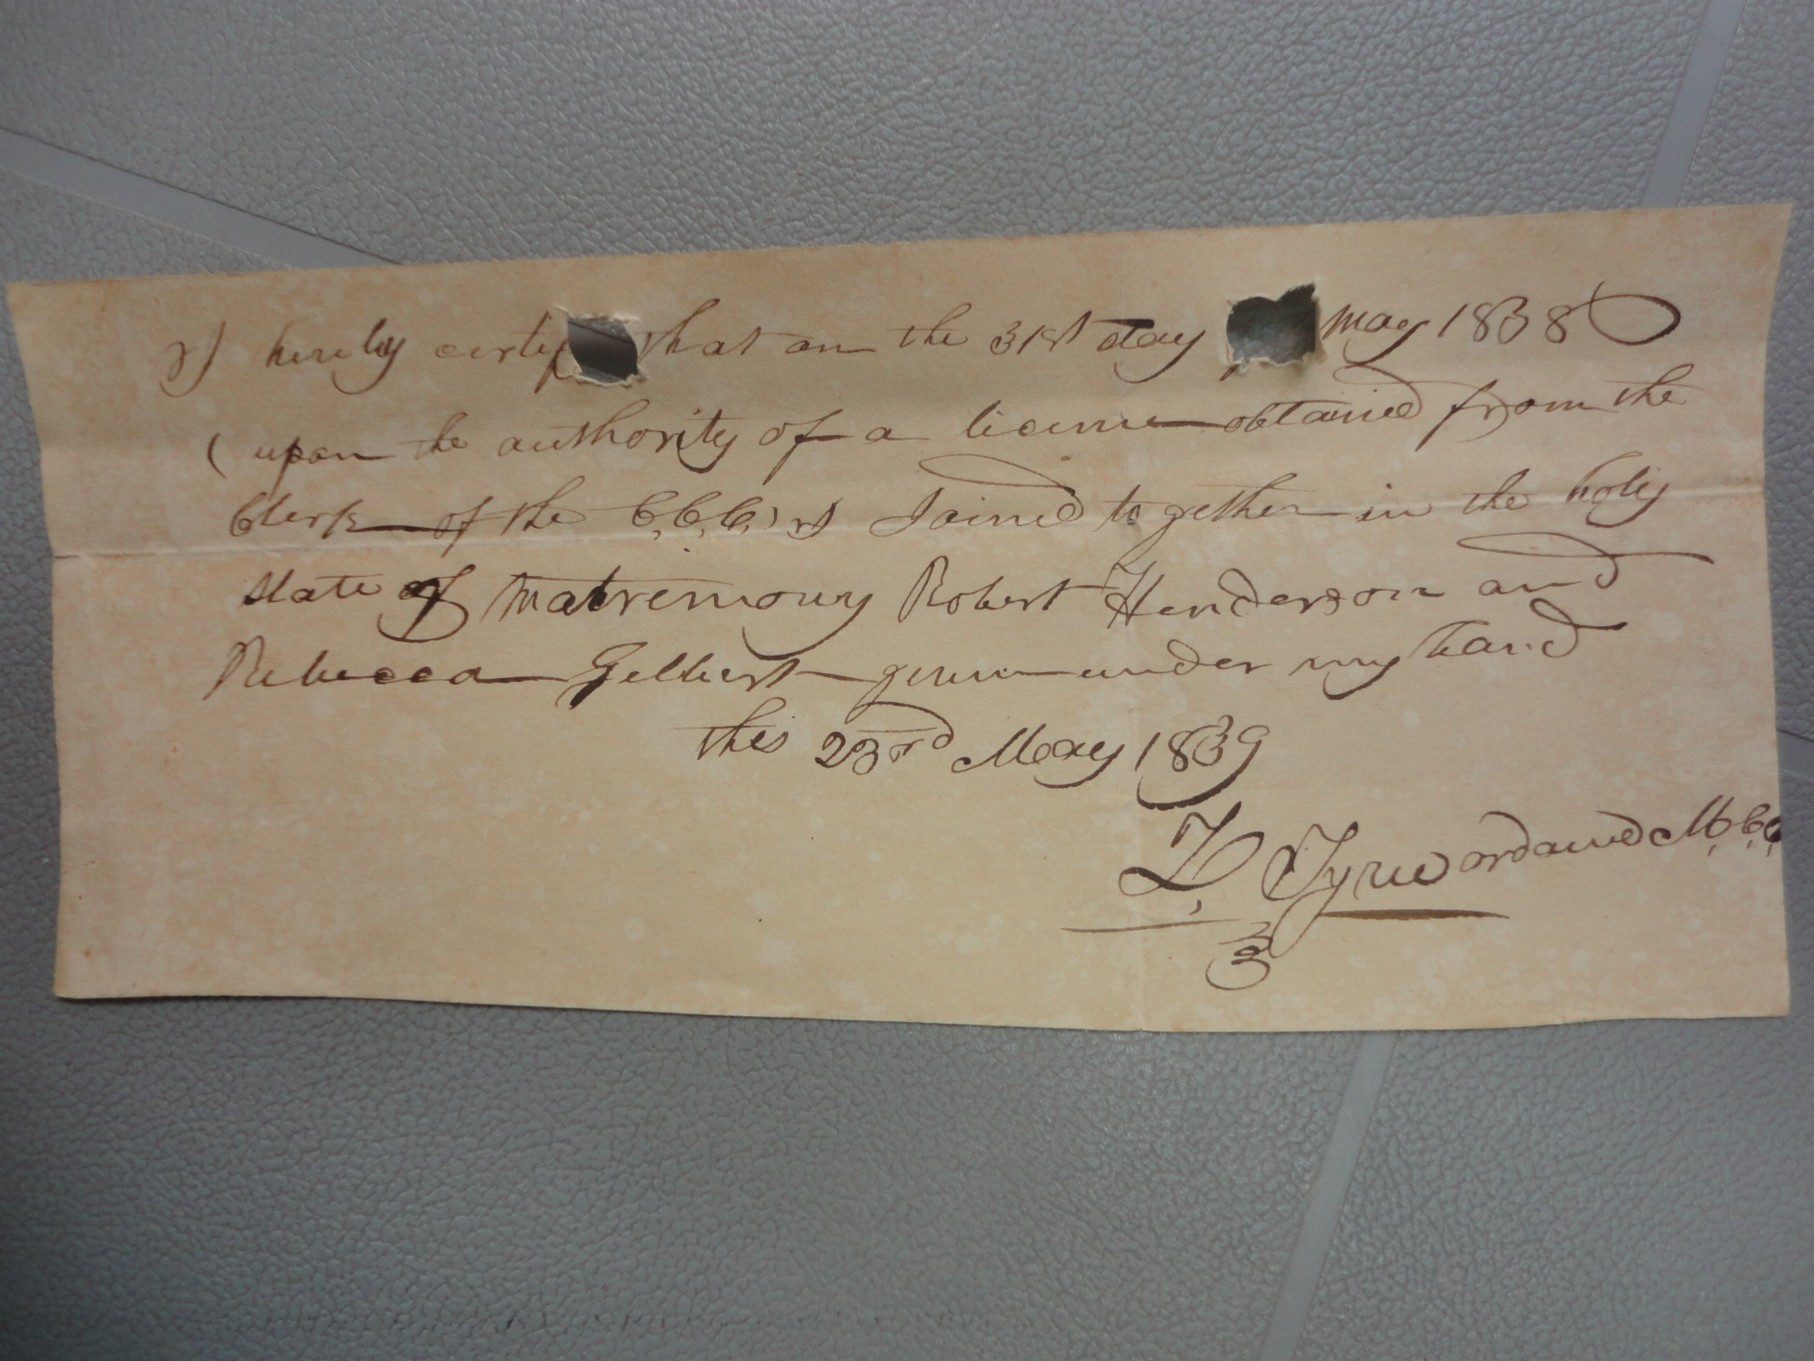 I hereby certify that on the 31st day May 1838
( upon the authority of a licence obtained from the
Clerk of the C,C,C,) I Joined together in the holy
state of matrimony Robert Henderson and
Rebecca Gilbert given under my hand
this 23rd May 1839
Tyree ordained M,